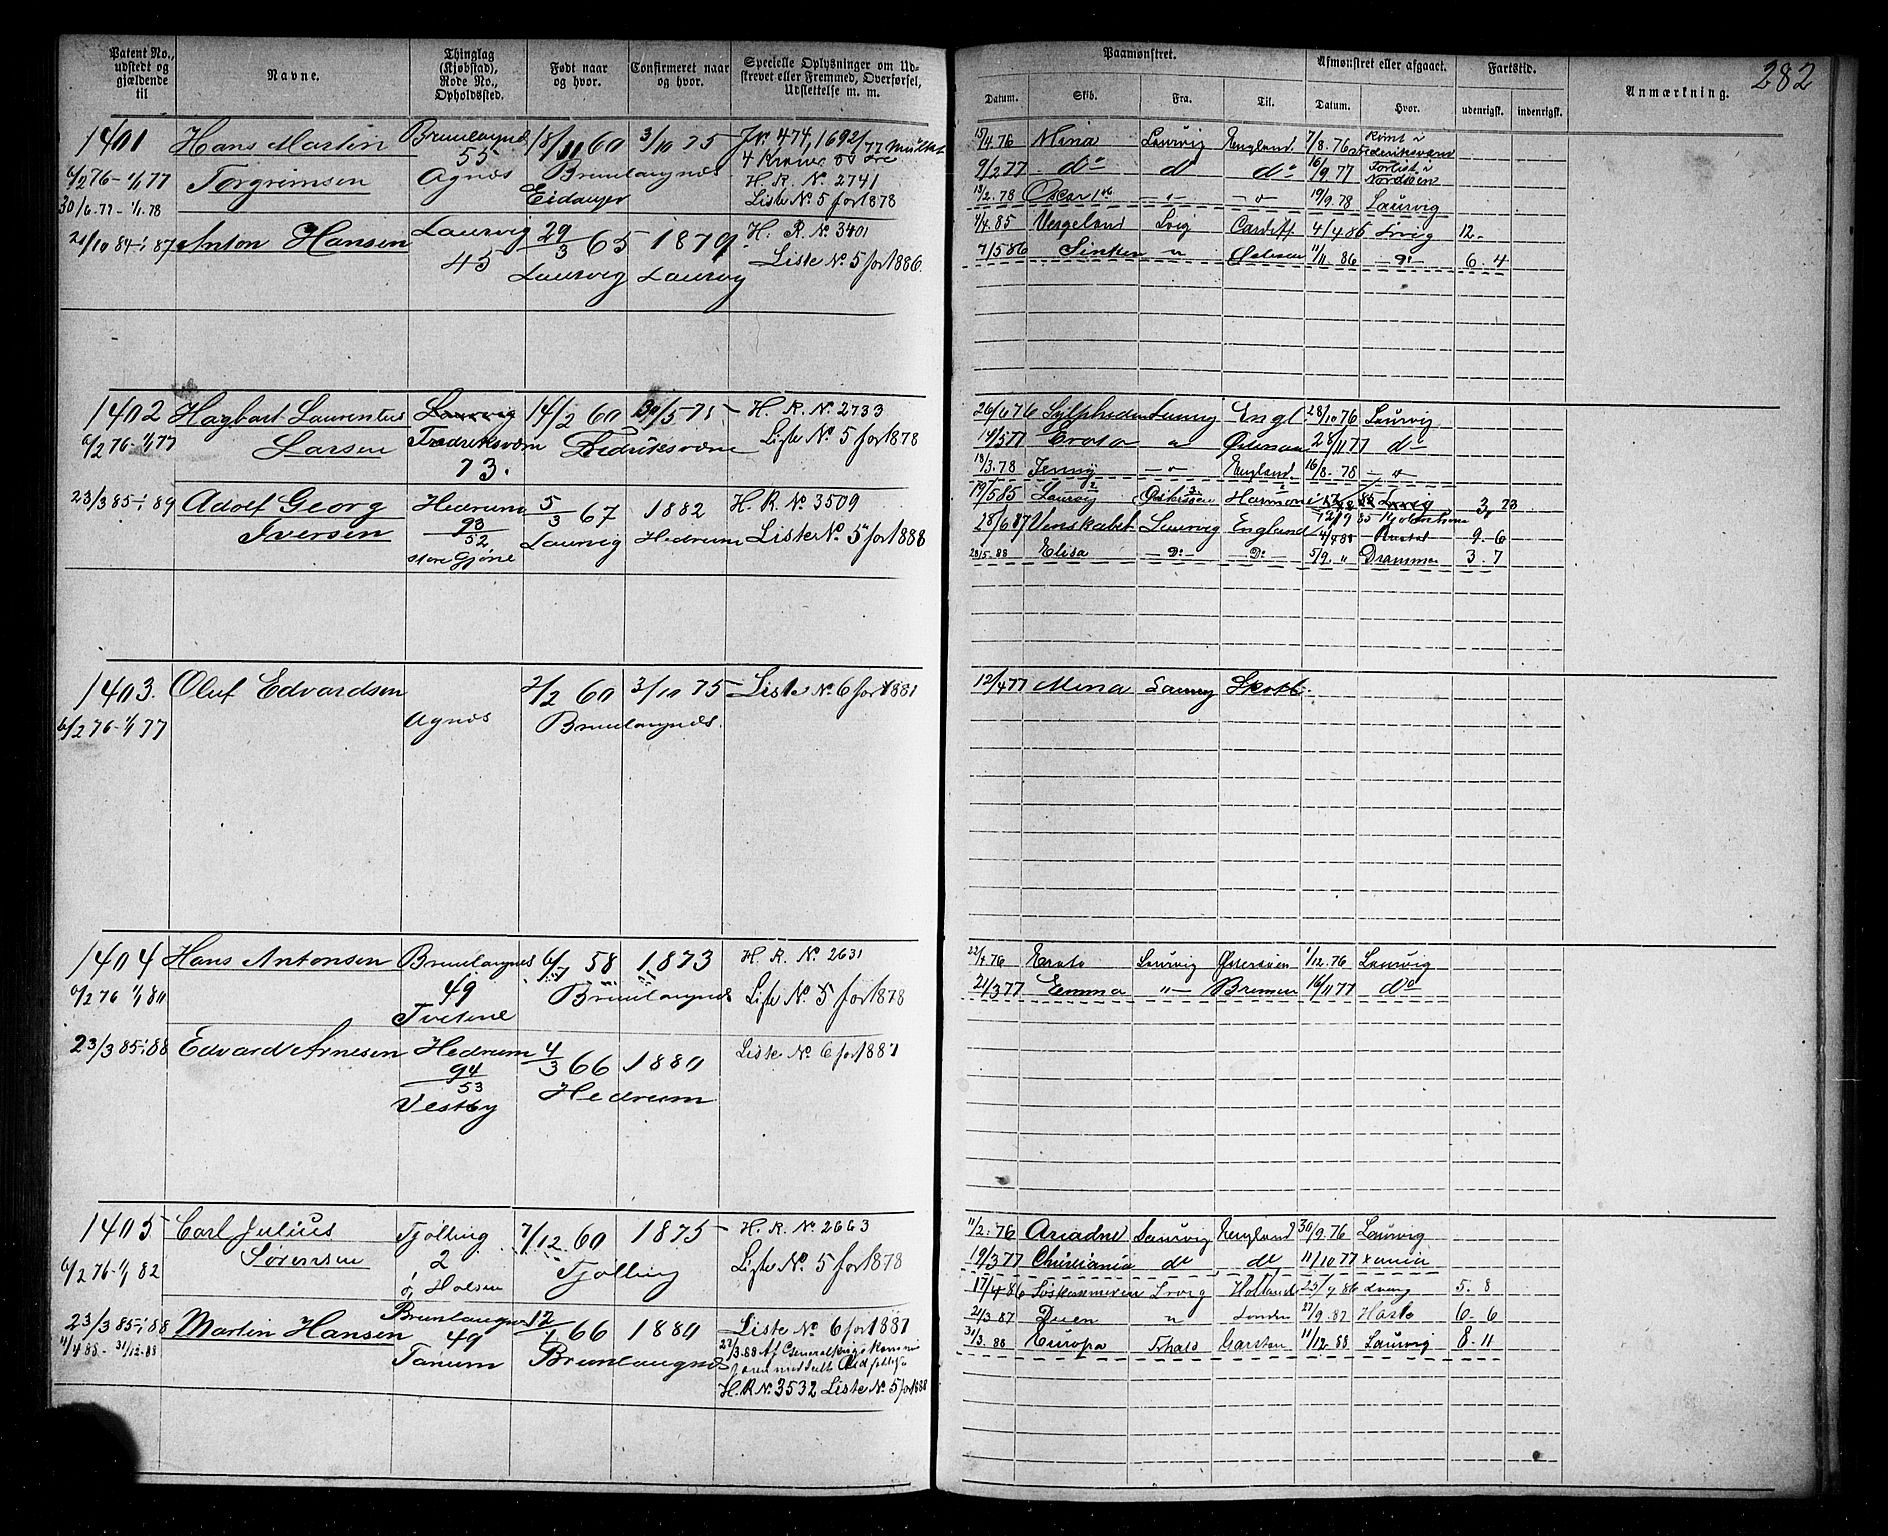 282
Patent No., udstedt og gjældende til
Navne.
Thinglag (Kjøbstad), Rode No., Opholdssted.
Født naar og hvor.
Confirmeret naar og hvor.
Specielle Oplysninger om Udskrevet eller Fremmed, Overførsel, Udslettelse m. m.
Paamønstret.
Datum. Skib. Fra. Til.
Afmønstret eller afgaaet.
Datum. Hvor.
Fartstid.
udenrigsk. indenrigsk.
Anmærkning.
1401 Hans Martin Brunlaugnæs 18/11 60 3/10 75 J.N. 474, 1692/77 Mulkt
55 4 Kroner
6/2 76 - 1/1 77 Torgrimsen Agnæs Brunlaugnæs H. R. No. 2741
30/6 77 - 1/1 78 Eidanger Liste No. 5 for 1878
15/4 76 Mina Laurvig England 7/8 76 Rømt i Frederiksværn
9/2 77 do d do 16/9 77 Forlist i Nordsøen
13/2 78 Oscar 1ste 19/9 78 Laurvig
21/10 84 - 1/1 87 Anton Hansen Laurvig 29/3 65 1879 H. R. No. 3401
45 Laurvig Laurvig Liste No. 5 for 1886.
4/4 85 Vergeland Lvig Cardiff 4/4 86 Lvig 12
7/5 86 Sinken " 1/11 86 6. 4
1402 Hagbart Laurentus Laurvig 14/2 60 30/5 75 H. R. No. 2733
6/2 76 - 1/1 77 Larsen Fredriksværn Fredriksværn Liste No. 5 for 1878
73.
26/6 76 Sylpheden Laurvig Engl. 28/10 76 Laurvig
14/5 77 Erato " 28/11 77 do
18/3 78 Jenny England 16/8 78
23/3 85 - 1/1 89 Adolf Georg Hedrum 5/3 67 1882 H. R. No. 3509
Iversen 93/52 Laurvig Hedrum Liste No. 5 for 1888
store Gjøne
19/5 85 Laurvig 3, 23
28/6 87 Venskabet Laurvig England 4/4 88 9. 6
28/5 88 Elisa Do Do 5/9 " Drammen 3. 7
1403. Oluf Edvardsen 2/2 60 3/10 75 Liste No. 6 for 1881
6/2 76 - 1/1 77 Agnæs Brunlaugnæs.
12/4 77 Mina Laurvig Skotl.
1404 Hans Antonsen Brunlaugnæs 6/7 58 1873 H. R. No. 2631
6/2 76 1/1 80 49 Brunlaugnæs Liste No. 5 for 1878
Tvetene
22/4 76 Erato Laurvig Østersøen 1/12 76 Laurvig
21/3 77 Emma " Bremen 16/11 77 do
23/3 85 - 1/1 88 Edvard Arnesen Hedrum 4/3 66 1880 Liste No. 6 for 1887
94/53 Hedrum
Vestby
1405 Carl Julius Tjølling 7/12 60 1875 H. R. No. 2663
6/2 76 - 1/1 82 Sørensen 2 Tjølling Liste No. 5 for 1878
11/2 76 Ariadne Laurvig England 30/9 76 Laurvig
19/3 77 Christiania do do 11/10 77 Xania
23/3 85 - 1/1 88 Martin Hansen Brunlaugnæs 12/4 66 1880 Liste No. 6 for 1887
11/4 85 - 31/12 88 49 Brunlaugnæs
Tanum H. R. No. 3532 Liste No. 5 for 1888
17/4 86 Lvig Holland 25/9 86 5. 8
21/3 87 Duen " London 27/9 87 6. 6
31/3 88 Europa 11/12 88 Laurvig 8. 11